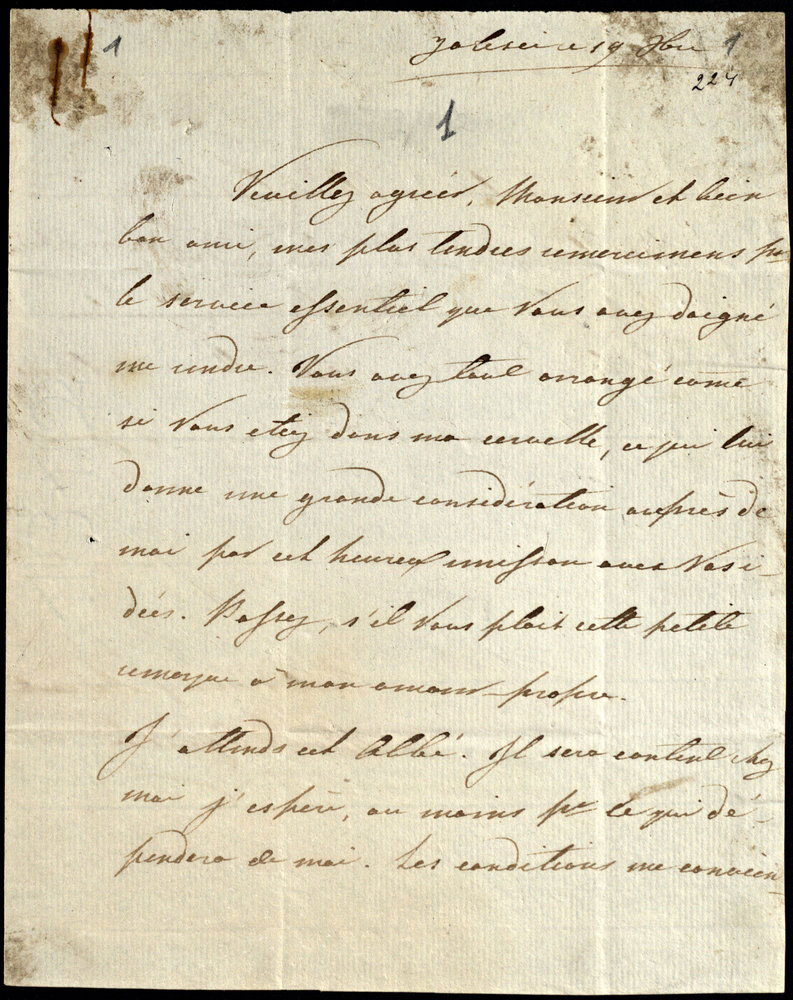 1
19 1
224
1
Veuillez agréer, Monsieur et bien
bon ami, mes plus tendres remercimens pr
le service essentiel que Vous avez daigné
me rendre. Vous avez tout arrangé come
si Vous etiez dans ma cervelle, ce qui lui
donne une grande considération auprès de
moi par cet heureux unisson avec Vos i-
dées. Passez, s'il Vous plait cette petite
remarque à mon amour-propre.
J'attends cet Abbé. Il sera content chez
moi j'espère, au moins pr ce qui dé-
pendera de moi. Les conditions me convien-